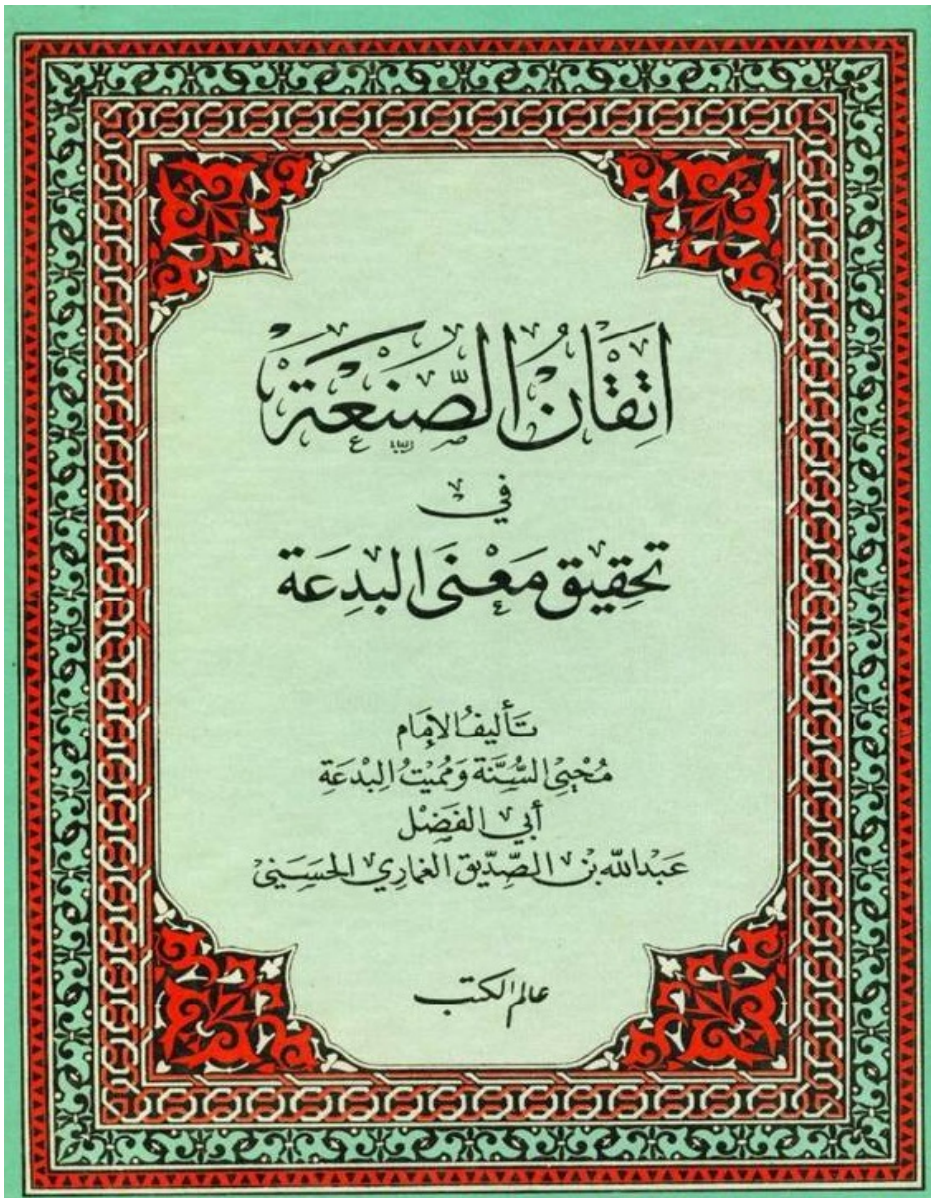 اتقَان الصَّنعَة
في
تحقِيق مَعْنى البدِعَة
تَأليفُ الإمَام
مُحْيِي السُّنَّة وَمُميتُ البِدْعَة
أبي الفَضْل
عَبدالله بن الصِّدِّيق الغماري الحَسَيني
عالم الكتب